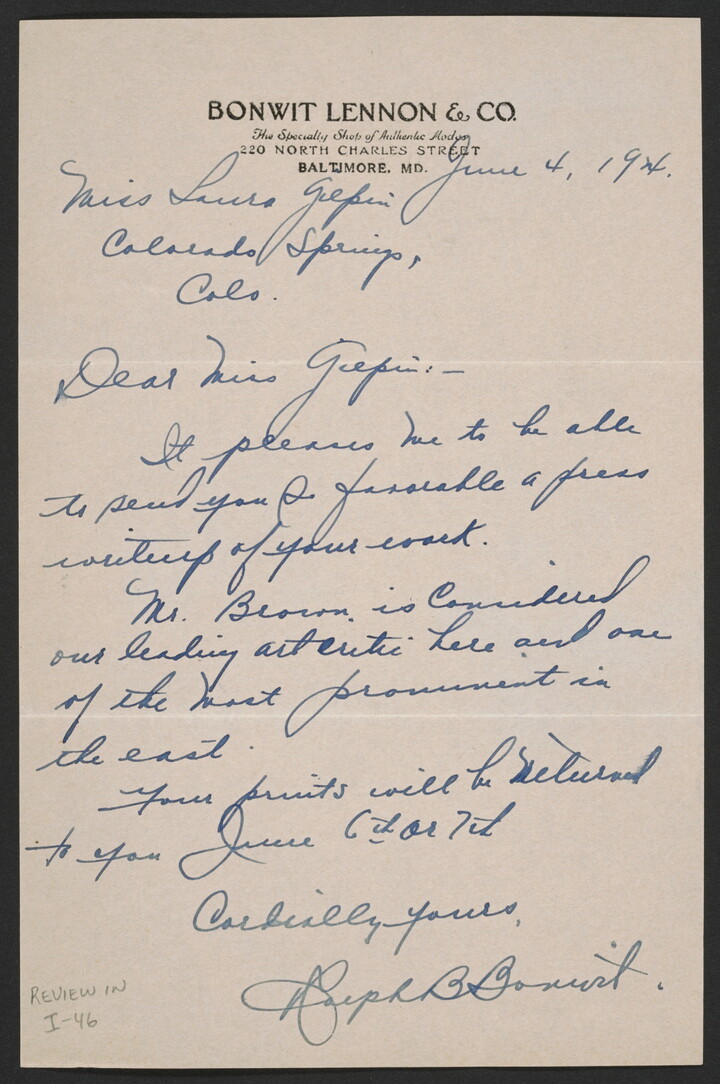 BONWIT LENNON & CO.
The Specialty Shop of Authentic Modes
220 NORTH CHARLES STREET
BALTIMORE, MD.
June 4, 194.
Miss Laura Gilpin
Colorado Springs,
Colo.
Dear Miss Gilpin:—
It pleases me to be able
to send you so favorable a press
writeup of your work.
Mr. Brown is Considered
our leading art critic here and one
of the most prominent in
the east.
Your prints will be returned
to you June 6th or 7th
Cordially yours,
Ralph B Bonwit.
REVIEW IN
I-46